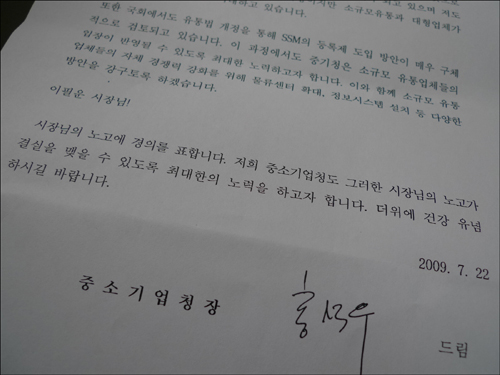 있으며 저도
하고 있습니다. 소규모유통과 대형업체가
또한 국회에서도 유통법 개정을 통해 SSM의 등록제 도입 방안이 매우 구체
적으로 검토되고 있습니다. 이 과정에서도 중기청은 소규모 유통업체들의
입장이 반영될 수 있도록 최대한 노력하고자 합니다. 이와 함께 소규모 유통
업체들의 자체 경쟁력 강화를 위해 물류센터 확대, 정보시스템 설치 등 다양한
방안을 강구토록 하겠습니다.
이필운 시장님!
시장님의 노고에 경의를 표합니다. 저희 중소기업청도 그러한 시장님의 노고가
결실을 맺을 수 있도록 최대한의 노력을 하고자 합니다. 더위에 건강 유념
하시길 바랍니다.
2009. 7. 22
중소기업청장 홍석우 드림